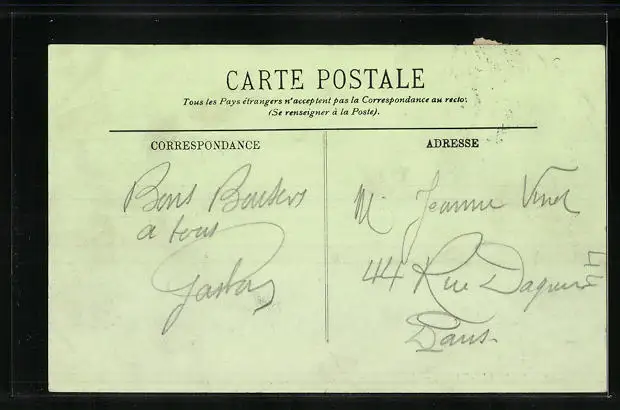 CARTE POSTALE
Tous les Pays étrangers n'acceptent pas la Correspondance au recto.
(Se renseigner à la Poste).
CORRESPONDANCE
ADRESSE
Bons Baisers
a tous
Gaston
M. Jeanne Vinot
44 Rue Daguerre
Paris